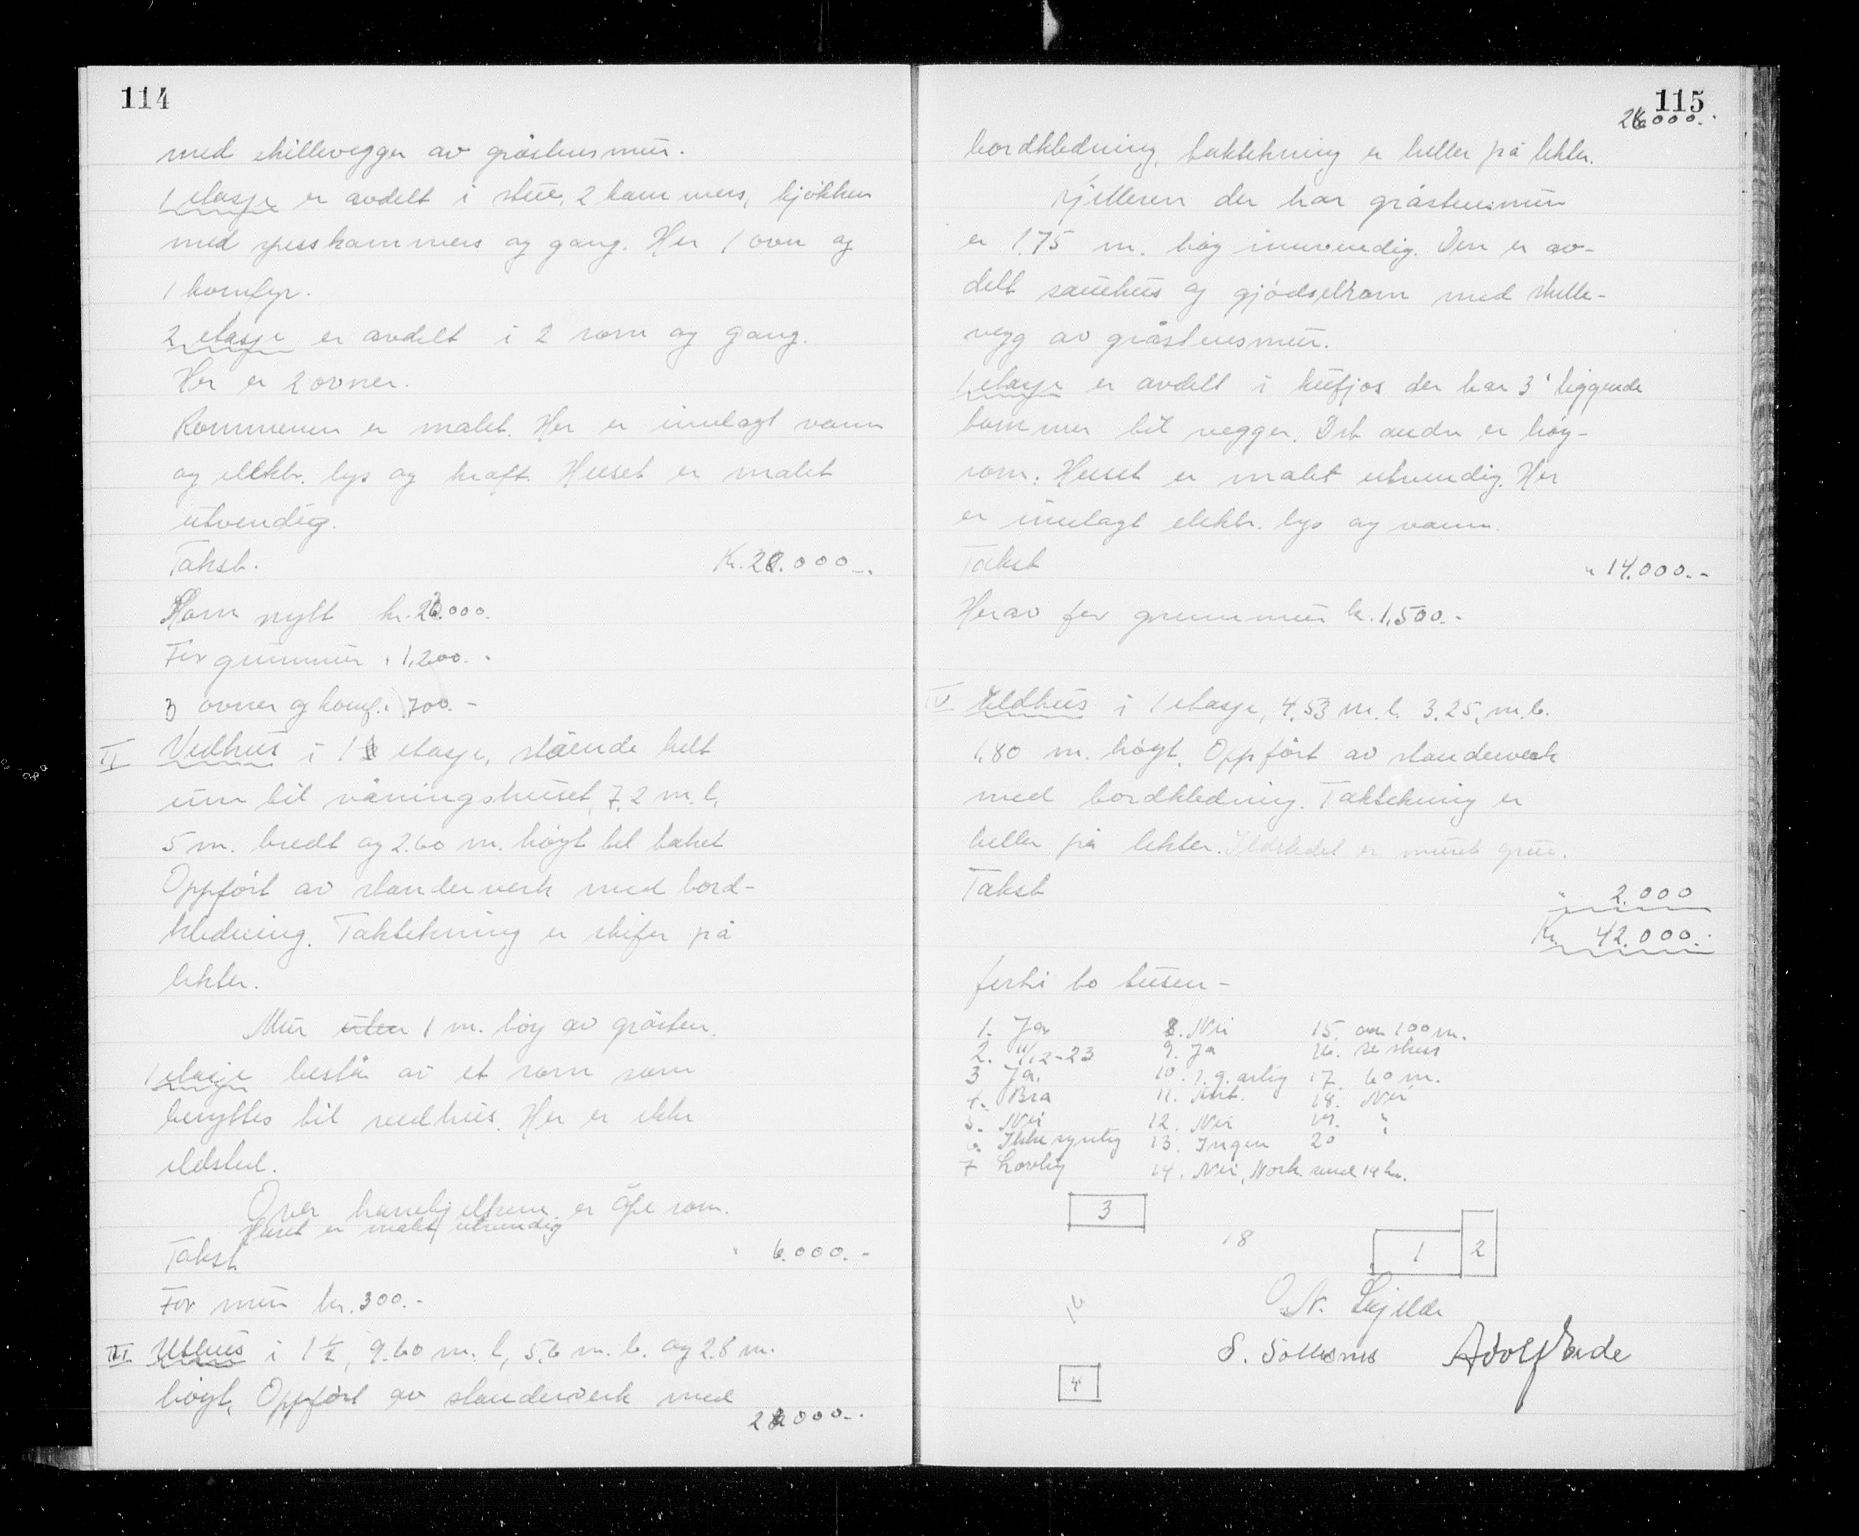 114
med skillevegger av gråstensmur.
1 etasje er avdelt i stue, 2 kammers, kjøkken
med spisskammers og gang. Her 1 ovn og
1 komfyr.
2 etasje er avdelt i 2 rom og gang.
Her er 2 ovner.
Rommenen er malet. Her er innlagt vann
og elektr. lys og kraft. Huset er malet
utvendig.
Takst. Kr. 20.000.-
Som nytt kr. 000.
For grunnmur " 1.200.-
3 ovner og komf. " 700.-
II Vedhus i 1 etasje, stående helt
inn til våningshuset, 7,2 m. l.
5 m. bredt og 2.60 m. høyt til taket
Oppført av standerverk med bord-
kledning. Taktekning er skifer på
lekter.
Mur uten 1 m. høy av gråsten.
1 etasje består av et rom som
benyttes til vedhus. Her er ikke
ildsted.
Over hanebjelkene er åpe rom.
Huset er malet utvendig
Takst " 6.000.-
For mur kr. 300.-
III Uthus i 1 1/2, 9.60 m. l, 5,6 m. b. og 2.8 m.
høyt, Oppført av standerverk med
26000.-
115
26000.-
bordkledning, taktekning er heller på lekter.
Kjelleren der har gråstensmur
er 1.75 m. høy innvendig. Den er av-
delt sauehus og gjødselrom med skille-
vegg av gråstensmur.
1 etasje er avdelt i kufjos der har 3" liggende
tømmer til vegger. Det andre er høy-
rom. Huset er malet utvendig. Her
er innlagt elektr. lys og vann.
Takst " 14.000.-
Herav for grunnmur kr. 1,500.-
IV Eldhus i 1 etasje, 4.53 m. l. 3.25, m. b.
1.80 m. høyt. Oppført av standerverk
med bordkledning. Taktekning er
heller på lekter. Ildstedet er muret grue.
Takst " 2.000
Kr. 42.000.-
førti to tusen -
1. Ja 8. Nei 15. om 100 m.
2. 11/12-23 9. Ja 16.
3 Ja. 10. årlig 17. 60 m.
4. Bra 11. 18. Nei
5. Nei 12. Nei 19. "
6. Ikke synlig 13. Ingen 20
7 Lovlig 14. Nei,
3
18
1 2
O. N. Gjelde
S. Solesnes Adolf Eide
4